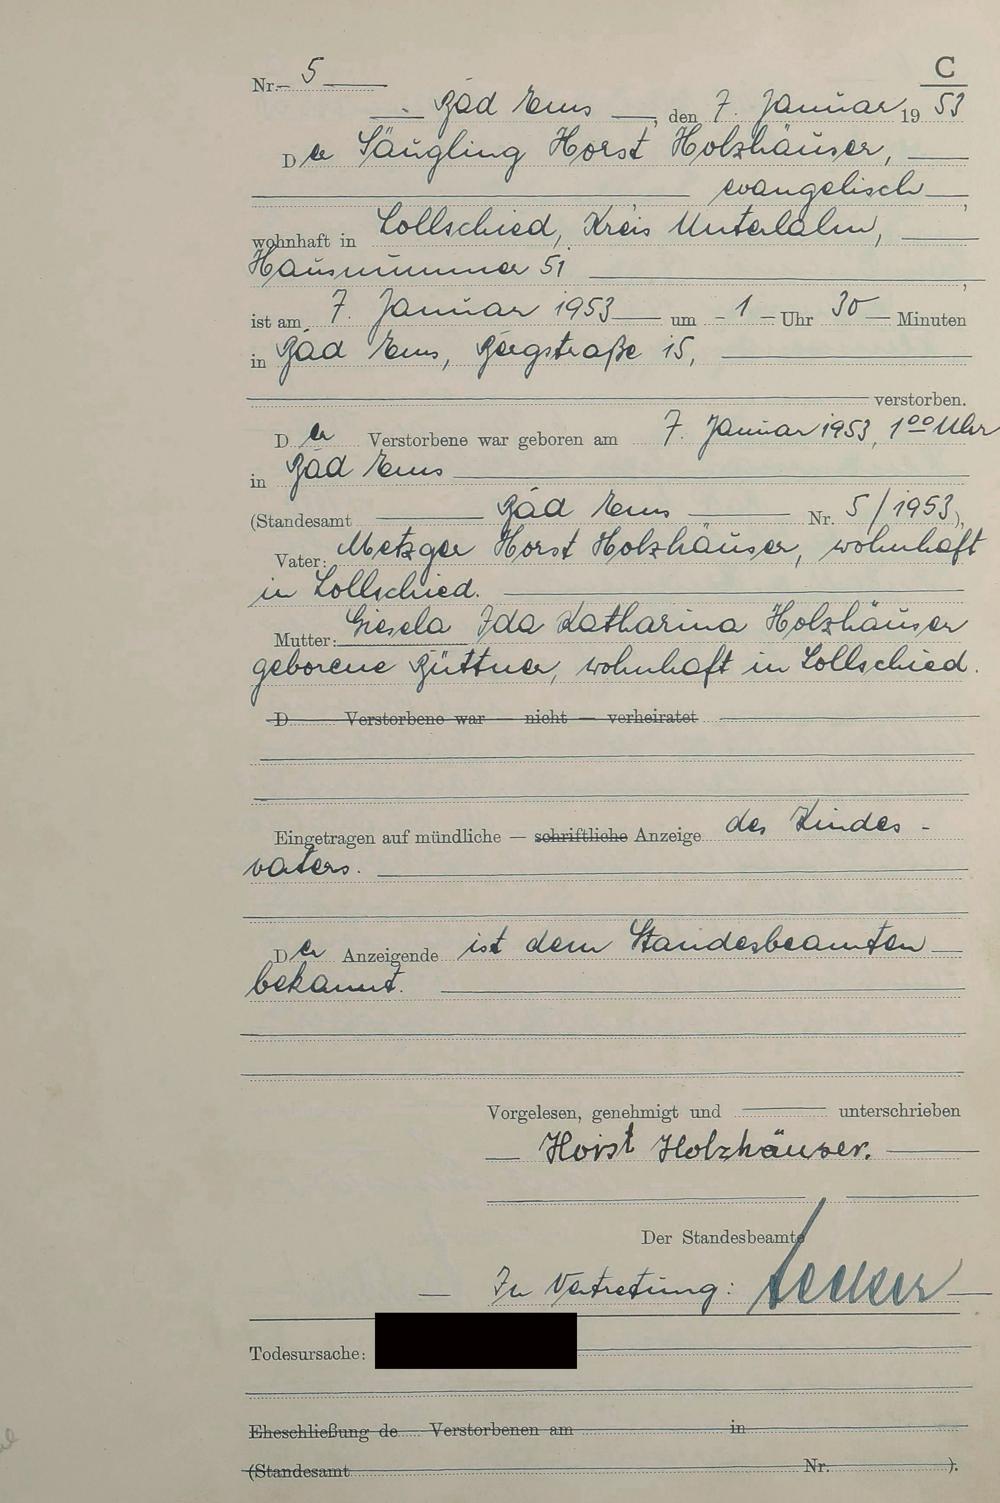 C
Nr. 5
Bad Ems, den 7. Januar 19 53
Der Säugling Horst Holzhäuser,
evangelisch,
wohnhaft in Lollschied, Kreis Unterlahn,
Hausnummer 51,
ist am 7. Januar 1953 um 1 Uhr 30 Minuten
in Bad Ems, Bergstraße 15,
verstorben.
Der Verstorbene war geboren am 7. Januar 1953, 1⁰⁰ Uhr
in Bad Ems
(Standesamt Bad Ems Nr. 5/1953),
Vater: Metzger Horst Holzhäuser, wohnhaft
in Lollschied.
Mutter: Giesela Ida Katharina Holzhäuser
geborene Büttner, wohnhaft in Lollschied.
D Verstorbene war — nicht — verheiratet
Eingetragen auf mündliche — schriftliche Anzeige des Kindes-
vaters.
Der Anzeigende ist dem Standesbeamten
bekannt.
Vorgelesen, genehmigt und unterschrieben
Horst Holzhäuser.
Der Standesbeamte
In Vertretung:
Todesursache:
Eheschließung de Verstorbenen am in
(Standesamt Nr. ).